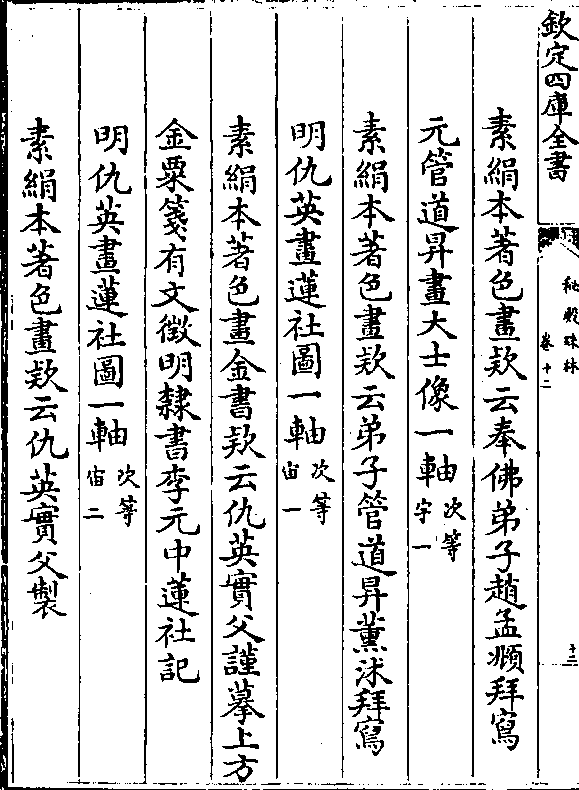 欽定四庫全書
秘殿珠林
卷十二
十三
素絹本著色畫款云奉佛弟子趙孟頫拜寫
元管道昇畫大士像一軸 次等 宇一
素絹本著色畫款云弟子管道昇薰沐拜寫
明仇英畫蓮社圖一軸 次等 宙一
素絹本著色畫金書款云仇英實父謹摹上方
金粟箋有文徵明隸書李元中蓮社記
明仇英畫蓮社圖一軸 次等 宙二
素絹本著色畫款云仇英實父製